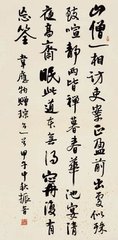 山僧一相訪吏案正盈前出處似殊
致喧靜兩皆禪暮春華池宴清
夜高齋眠此道本無得寧復有
忘筌 韋應物贈琮公一首 甲午中秋